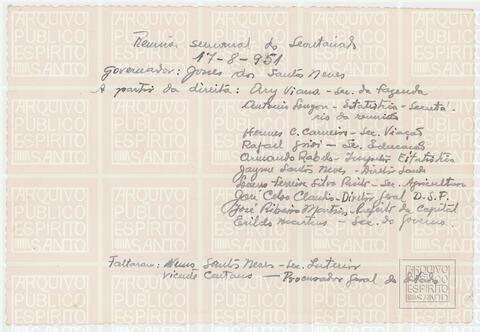 Reunião semanal do Secretariado
17-8-951
Governador: Jones dos Santos Neves
A partir da direita: Ary Viana - Sec. da Fazenda
Antonio - Estatística - Secretá-
rio da reunião
Hermes C. Carneiro - Sec. Viação
Rafael Grisi - Sec. Educação
Armando Rabelo - Inspetor Estatística
Jayme Santos Neves - Diretor Saude
Ferreira Silva Pinto - Sec. Agricultura
José Celso Claudio - Diretor Geral D.S.P.
José Ribeiro Martins - Prefeito da Capital
Erildo Martins - Sec. do governo.
Faltaram: Santos Neves - Sec. Interior
Vicente Caetano - Procurador Geral do Estado
ARQUIVO
PÚBLICO
ESPÍRITO
SANTO